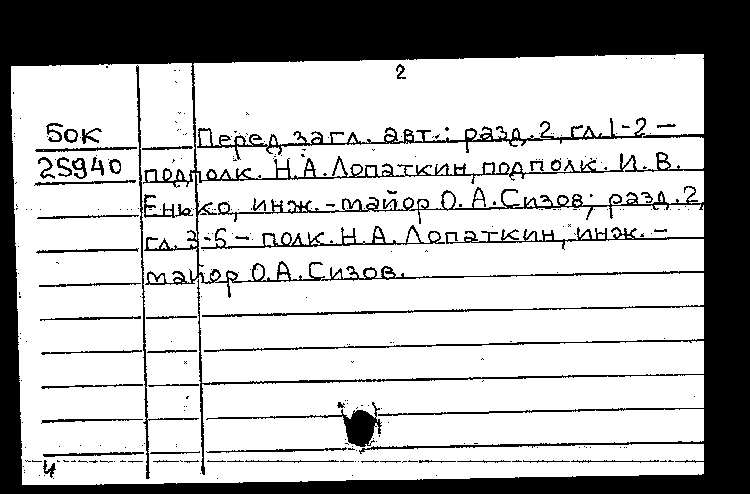 2
БОК
25940
Перед загл. авт.: разд. 2, гл. 1-2 —
подполк. Н.А. Лопаткин, подполк. И. В.
Енько, инж.-майор О.А. Сизов; разд. 2,
гл. 3-6 — полк. Н.А. Лопаткин, инж.-
майор О.А. Сизов.
и